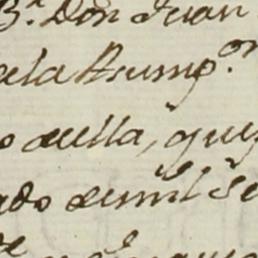 B.ª Don Juan
dela Asump.on
o della, que
ado demil se